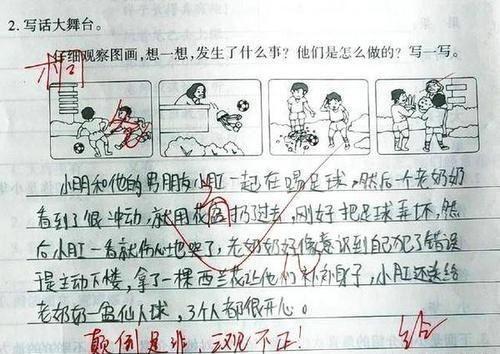 2. 写话大舞台。
仔细观察图画,想一想,发生了什么事?他们是怎么做的?写一写。
小明和他的男朋友小肛一起在踢足球,然后一个老奶奶
看到了很冲动,就用花盆扔过去,刚好把足球弄坏,然
后小肛一看就伤心地哭了,老奶奶好像意识到自己犯了错误
于是主动下楼,拿了一棵西兰花让他们补补身子,小肛还送给
老奶奶一盆仙人球,3个人都很开心。
颠倒是非,三观不正!